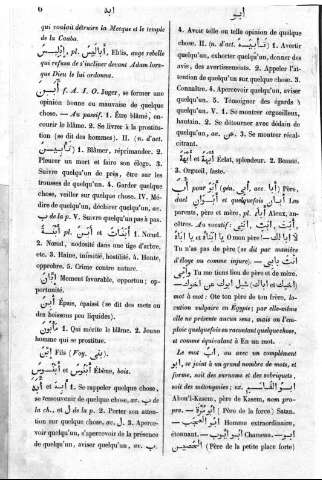 6
ابد
ابو
qui voulait détruire la Mecque et le temple
de la Caaba.
إبليس, pl. أباليس, Eblis, ange rebelle
qui refusa de s'incliner devant Adam lorsque
Dieu le lui ordonna.
أبن f. A. I. O. Juger, se former une
opinion bonne ou mauvaise de quelque
chose. — Au passif. 1. Être blâmé, encourir
le blâme. 2. Se livrer à la prostitution
(se dit des hommes). II. (n. d'act.
تأبين) 1. Blâmer, réprimander. 2.
Pleurer un mort et faire son éloge. 3.
Suivre quelqu'un de près, être sur les
traces de quelqu'un. 4. Garder quelque
chose, veiller sur quelque chose. IV. Médire
de quelqu'un, déchirer quelqu'un, av.
ب de la p. V. Suivre quelqu'un pas à pas.
أبنة, pl. أبن 1. Nœud.
2. Nœud, nodosité dans une tige d'arbre,
etc. 3. Haine, inimitié, hostilité. 4. Honte,
opprobre. 5. Crime contre nature.
إبان Moment favorable, opportun; opportunité.
Épais, épaissi (se dit des mets ou
des boissons peu liquides).
مأبون 1. Qui mérite le blâme. 2. Jeune
homme qui se prostitue.
إبن Fils (Voy. بنى).
أبنوس Ébène, bois.
أبه et 1. Se rappeler quelque chose,
se ressouvenir de quelque chose, av. ب de
la ch., et ل de la p. 2. Porter son attention
sur quelque chose, av. ل. 3. Apercevoir
quelqu'un, s'apercevoir de la présence
de quelqu'un, aviser quelqu'un, av. ب
4. Avoir telle ou telle opinion de quelque
chose. II. (n. d'act. تأبيه) 1. Avertir
quelqu'un, exhorter quelqu'un, donner des
avis, des avertissements. 2. Appeler l'attention
de quelqu'un sur quelque chose. 3.
Connaître. 4. Apercevoir quelqu'un, aviser
quelqu'un. 5. Témoigner des égards à
quelqu'un. V. 1. Se montrer orgueilleux,
hautain. 2. Se détourner avec dédain de
quelqu'un, av. عن. 3. Se montrer récalcitrant.
أبهة 1. Éclat, splendeur. 2. Beauté.
3. Orgueil, faste.
أبو pour أب (gén. أبي, acc. أبا) Père,
duel أبوان et quelquefois أبان Les
parents, père et mère, pl. آباء Aïeux, ancêtres.
O mon père!
لا أبا لك
Tu n'as pas de père (se dit par manière
d'éloge ou comme injure). —
Tu me tiens lieu de père et de mère.
mot à mot: Ote ton père de ton frère, locution
vulgaire en Égypte; par elle-même
elle ne présente aucun sens, mais on l'emploie
quelquefois en racontant quelque chose,
et comme équivalent à En un mot.
Le mot أب, ou avec un complément
أبو, se joint à un grand nombre de mots, et
forme, soit des surnoms et des sobriquets,
soit des métonymies: ex. أبو القاسم
Abou'l-Kasem, père de Kasem, nom propre.
— أبو مرة (Père de la force) Satan.
— أبو العجب Homme extraordinaire,
étonnant. — أبو أيوب Chameau. — أبو
الحصين (Père de la petite place forte)